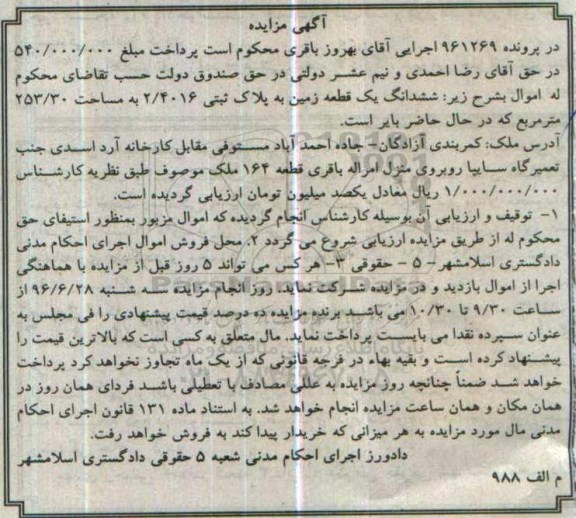 آگهی مزایده
در پرونده ۹۶۱۲۶۹ اجرایی آقای بهروز باقری محکوم است پرداخت مبلغ ۵۴۰/۰۰۰/۰۰۰
در حق آقای رضا احمدی و نیم عشر دولتی در حق صندوق دولت حسب تقاضای محکوم
له اموال بشرح زیر: ششدانگ یک قطعه زمین به پلاک ثبتی ۲/۴۰۱۶ به مساحت ۲۵۳/۳۰
مترمربع که در حال حاضر بایر است.
آدرس ملک: کمربندی آزادگان- جاده احمد آباد مستوفی مقابل کارخانه آرد اسدی جنب
تعمیرگاه سایپا روبروی منزل امراله باقری قطعه ۱۶۴ ملک موصوف طبق نظریه کارشناس
۱/۰۰۰/۰۰۰/۰۰۰ ریال معادل یکصد میلیون تومان ارزیابی گردیده است.
۱- توقیف و ارزیابی آن بوسیله کارشناس انجام گردیده که اموال مزبور بمنظور استیفای حق
محکوم له از طریق مزایده ارزیابی شروع می گردد ۲. محل فروش اموال اجرای احکام مدنی
دادگستری اسلامشهر - ۵ - حقوقی ۳- هر کس می تواند ۵ روز قبل از مزایده با هماهنگی
اجرا از اموال بازدید و در مزایده شرکت نماید. روز انجام مزایده سه شنبه ۹۶/۶/۲۸ از
ساعت ۹/۳۰ تا ۱۰/۳۰ می باشد برنده مزایده ده درصد قیمت پیشنهادی را فی مجلس به
عنوان سپرده نقدا می بایست پرداخت نماید. مال متعلق به کسی است که بالاترین قیمت را
پیشنهاد کرده است و بقیه بهاء در فرجه قانونی که از یک ماه تجاوز نخواهد کرد پرداخت
خواهد شد ضمناً چنانچه روز مزایده به عللی مصادف با تعطیلی باشد فردای همان روز در
همان مکان و همان ساعت مزایده انجام خواهد شد. به استناد ماده ۱۳۱ قانون اجرای احکام
مدنی مال مورد مزایده به هر میزانی که خریدار پیدا کند به فروش خواهد رفت.
دادورز اجرای احکام مدنی شعبه ۵ حقوقی دادگستری اسلامشهر
م الف ۹۸۸